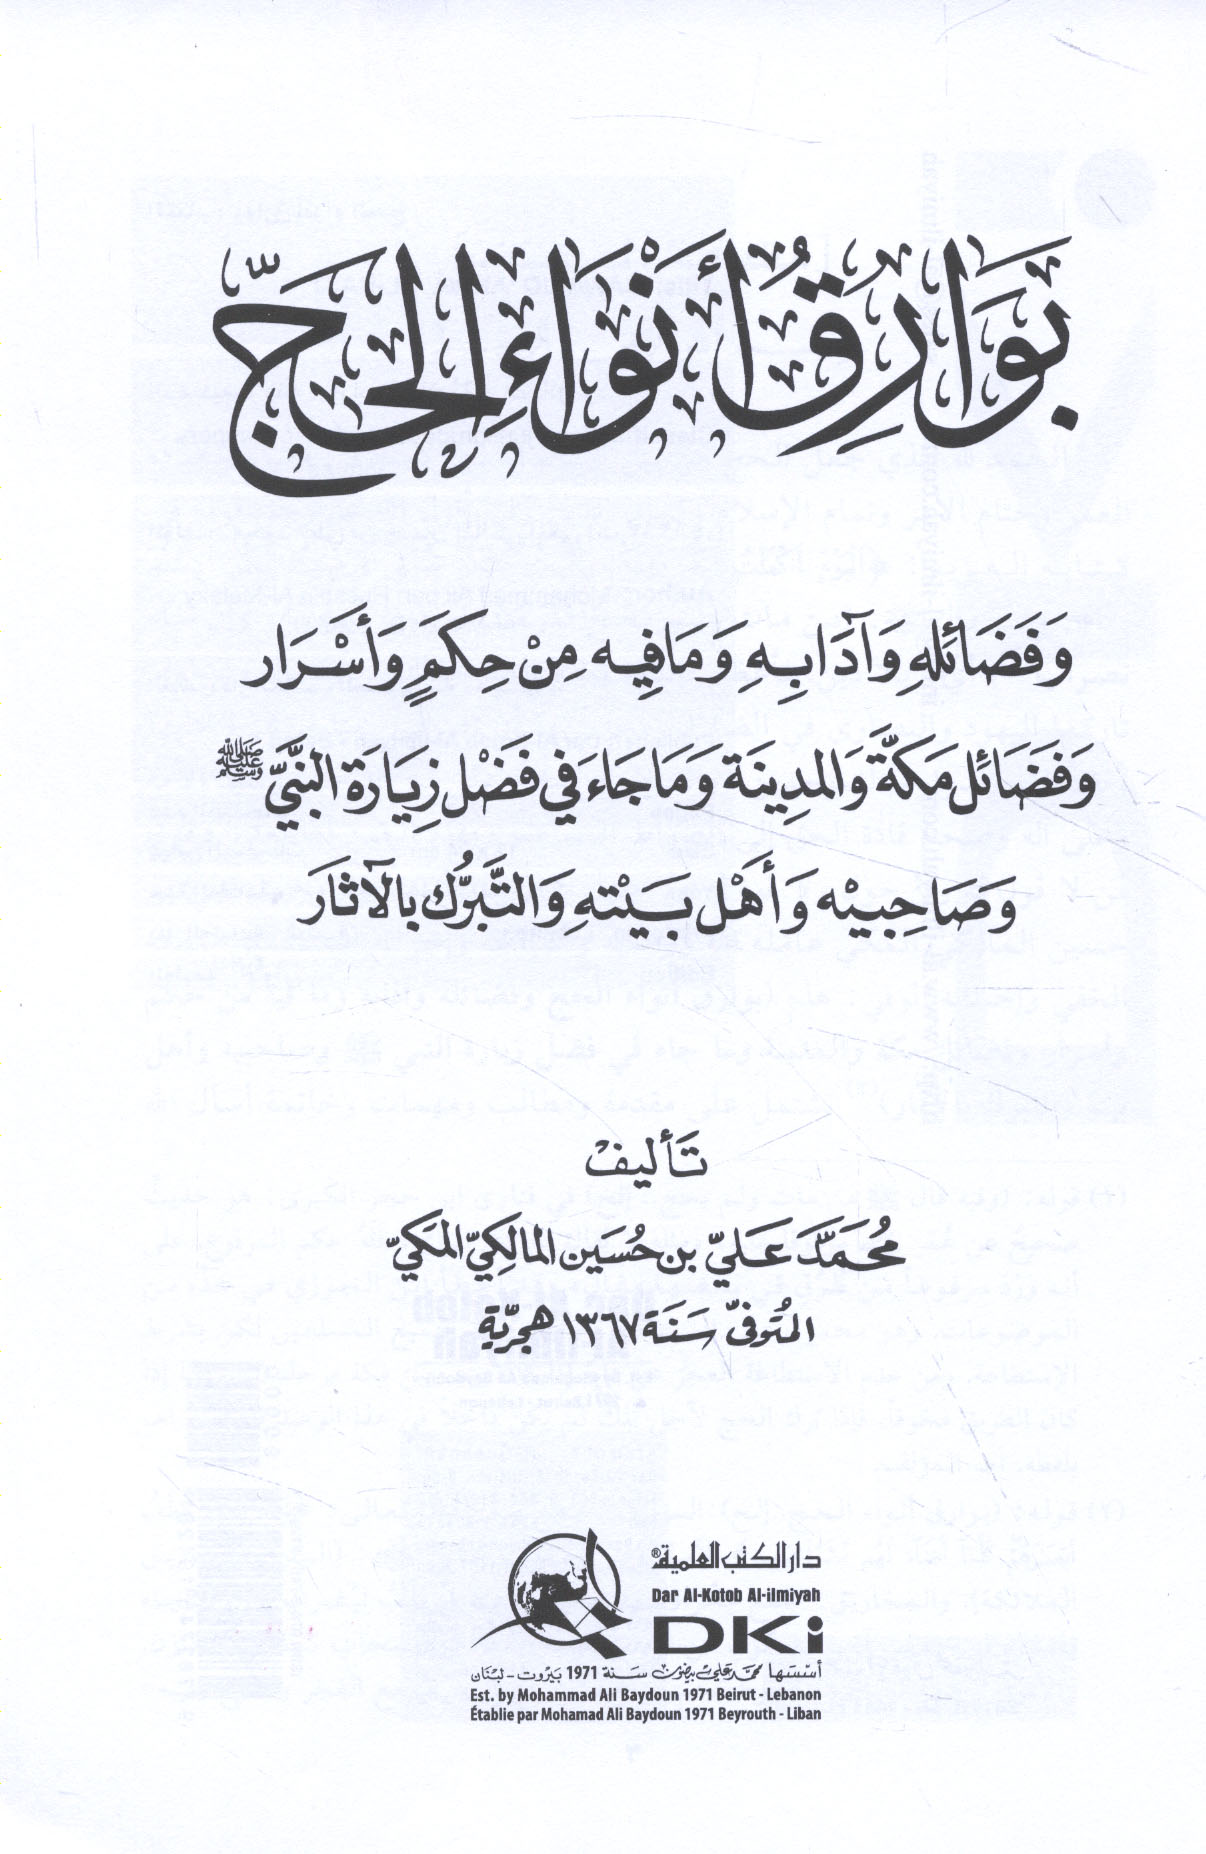 بَوَارِقُ أَنْوَاءِ الحَجّ
وَفَضَائلهِ وَآدَابِهِ وَمَا فِيه مِنْ حِكَمٍ وَأَسْرَار
وَفَضَائل مَكَّة وَالمدِينَة وَمَا جَاءَ في فَضْل زِيَارَة النبَّيّ ﷺ
وَصَاحِبيْه وَأَهْل بَيْته وَالتَّبَرُّك بالآثار
تَأليفْ
مُحَمَّد عَليّ بن حُسَين المالِكيّ المَكيّ
المتُوفّى سَنَة ١٣٦٧ هجريَّة
دار الكتب العلمية®
Dar Al-Kotob Al-ilmiyah
DKi
أسسها محمد علي بيضون سنة 1971 بيروت - لبنان
Est. by Mohammad Ali Baydoun 1971 Beirut - Lebanon
Établie par Mohamad Ali Baydoun 1971 Beyrouth - Liban